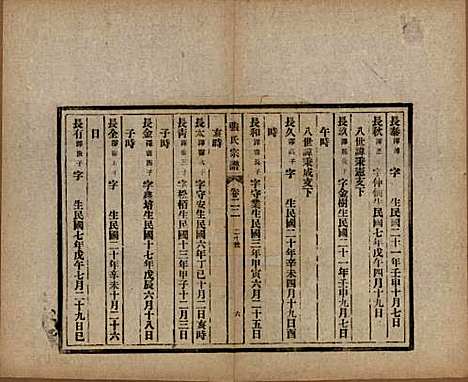 長泰 字 生民國二十一年壬申十月七日
長秋 字仲 生民國七年戊午四月十九日
八世諱秉憲支下
長玖 字金樹生民國二十一年壬申九月七日
午時
八世諱秉成支下
長久 子 字 生民國二十年辛未四月十九日酉
時
長和 長子 字守業生民國三年甲寅六月二十五日
張氏宗譜 卷二二 六
亥時
長太 子 字守安生民國六年丁巳十月二日亥時
長青 子 字松栢生民國十三年甲子十二月三日
子時
長金 長子 字 培生民國十七年戊辰六月十八日
長全 子 字 生民國二十年辛未十月二十六
日
長有 長子 字 生民國七年戊午七月二十九日巳